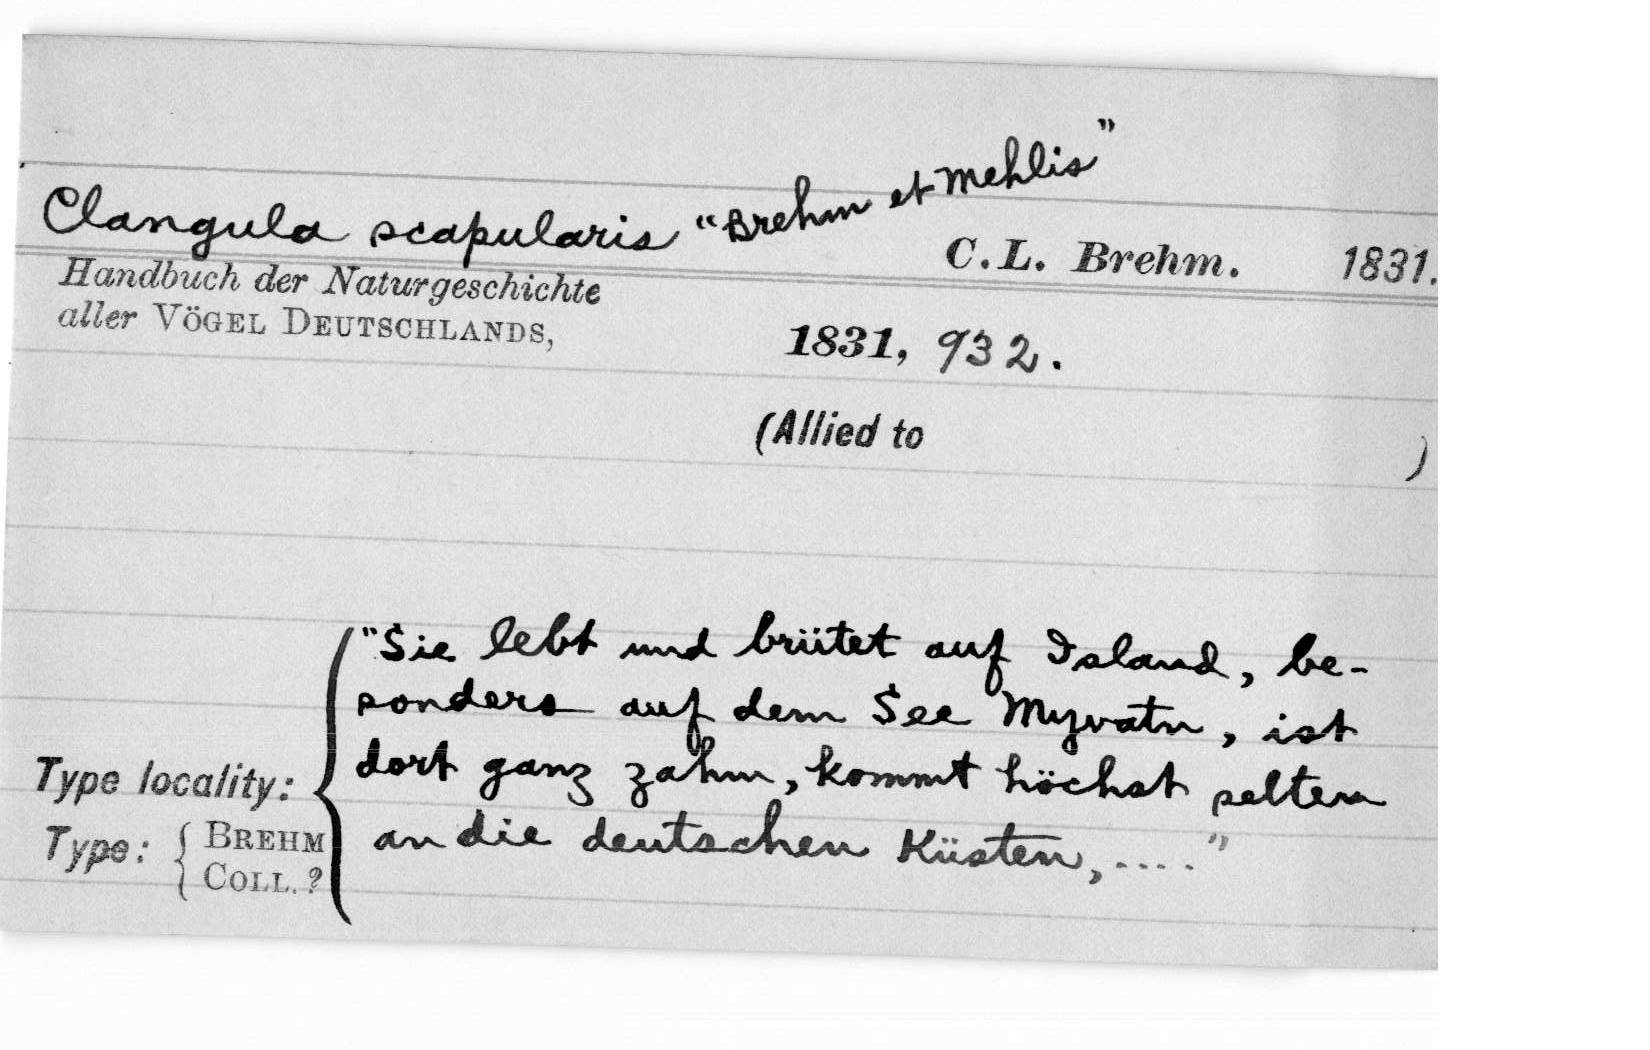 Clangula scapularis "Brehm et Mehlis"
C.L. Brehm. 1831.
Handbuch der Naturgeschichte
aller VÖGEL DEUTSCHLANDS,
1831, 932.
(Allied to )
"Sie lebt und brütet auf Island, be-
sonders auf dem See Myvatn, ist
dort ganz zahm, kommt höchst selten
an die deutschen Küsten, ...."
Type locality:
Type: { BREHM
COLL. ?